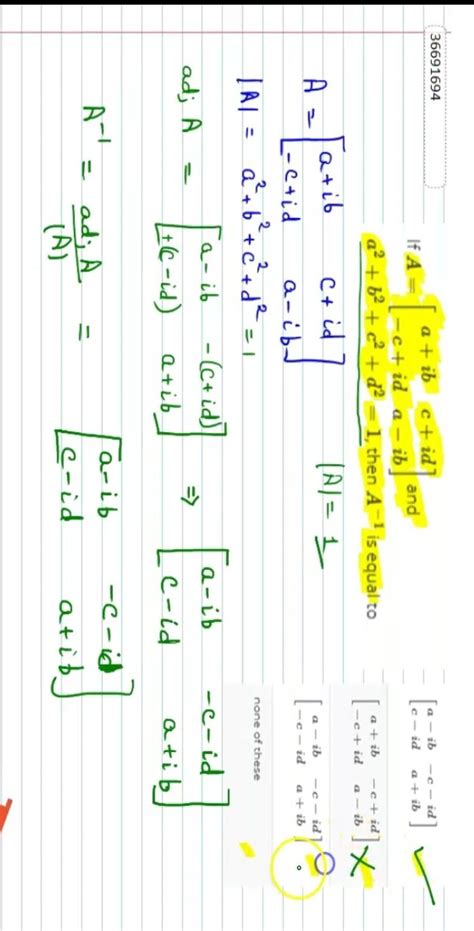 36691694
If A = [ a + ib c + id ] and
[ −c + id a − ib ]
a² + b² + c² + d² = 1, then A⁻¹ is equal to
[ a − ib −c − id ]
[ c − id a + ib ] ✓
[ a + ib −c + id ]
[ −c + id a − ib ] ✗
[ a − ib −c − id ]
[ −c − id a + ib ]
none of these
A = [ a+ib c+id ]
[ -c+id a-ib ]
|A| = 1
|A| = a²+b²+c²+d² = 1
adj A = [ a-ib -(c+id) ] ⇒ [ a-ib -c-id ]
[ +(c-id) a+ib ] [ c-id a+ib ]
A⁻¹ = adj A / (A) = [ a-ib -c-id ]
[ c-id a+ib ]